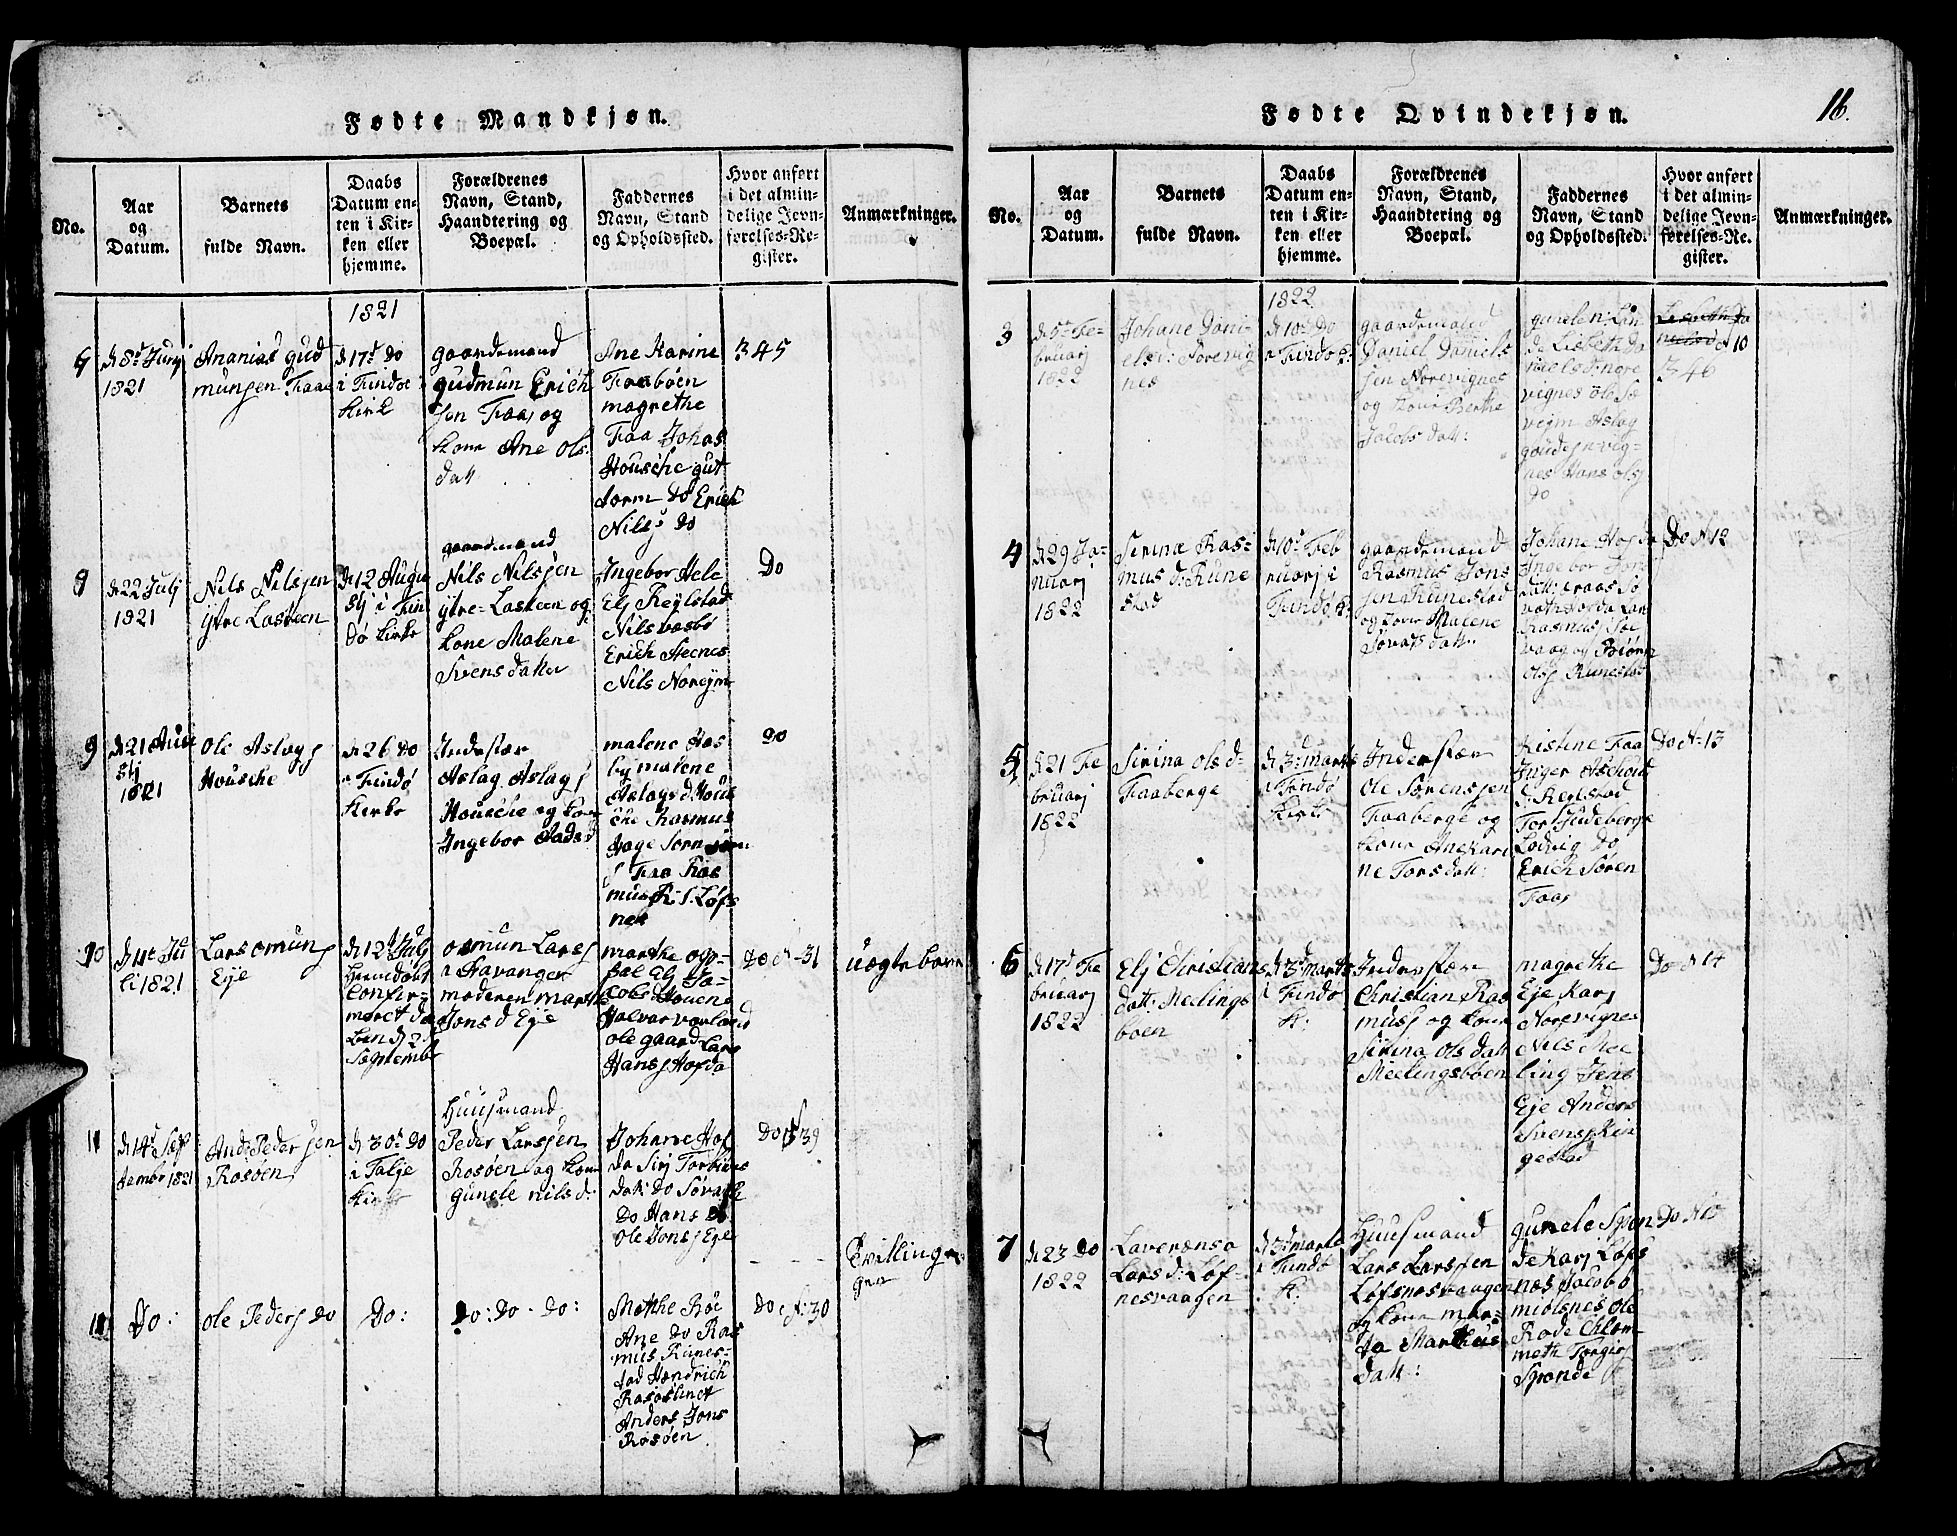 Fødte Mandkjøn.
No.
Aar
og
Datum.
Barnets
fulde Navn.
Daabs
Datum en-
ten i Kir-
ken eller
hjemme.
Forældrenes
Navn, Stand,
Haandtering og
Boepæl.
Faddernes
Navn, Stand
og Opholdssted.
Hvor anført
i det almin-
delige Jevn-
førelses-Re-
gister.
Anmærkninger.
1821
1821
Ananias gud
munsen Faae
d 17d do
i Findøe
Kirke
gaardemand
gudmun Erich
sen Faaj og
Kone Ane Ols
datt
Ane Karine
Faabøen
magrethe
Faa Johas
Housche gut
torm do Erich
Nilsj do
345
d 22 Julj
1821
Nils Nilsjen
ytre Lasteen
d 12 Augu
stj i Fin
dø Kirke
gaardmand
Nils Nilsjen
ytre Lasteen og
Kone Malene
Svens datter
Ingebor Hele
Elj Reylstad
Nils vasbø
Erich Hecnes
Nils Noreym
Do
9
d 21 Augu
stj
1821
Ole Aslagj
Housche
d 26 do
i Findø
Kirke
Inderstær
Aslag Aslagj
Housche og Kone
Ingebor
malene Has
bj malene
Aslags d. Hous
che Rasmus
Hage
Faa Ras
mus R. S. Løfs
nes
Do
10
d 11te Ju
li 1821
Lars omunj
Eje
d 12t Julj
Hiemedøbt
Confir-
meret da
ben d 2
Septembr
omun Larsj
i Stavanger
moderen marthe
Jons d Eje
marthe opp-
sal Elj Ja-
cobs d Houene
Halvar værland
ole gaard Lars
Hansj Hofda
Do N-31
uægte barn
11
d 14d Sep
tembr 1821
And: Peder sen
Rosøen
d 30d do
i Talje
Kirke
Huusmand
Peder Larsjen
Rosøen og Kone
gunele nils d:
Johane Hof
da Sirj Torbiøns
datt do Sørath
do Hans do
ole Jonsj Eje
Do N 39
Tvillinger
Do:
ole Pedersj do
Do:
Do: Do - Do:
Mathe Røe
Ane do Ras
mus Runes-
tad Hendrich
Anders Jons
Rosøen
Do N: 30
Fødte Qvindekjøn.
16.
No.
Aar
og
Datum.
Barnets
fulde Navn.
Daabs
Datum en-
ten i Kir-
ken eller
hjemme.
Forældrenes
Navn, Stand,
Haandtering og
Boepæl.
Faddernes
Navn, Stand
og Opholdssted.
Hvor anført
i det almin-
delige Jevn-
førelses-Re-
gister.
Anmærkninger.
1822
3
d 5t Fe-
bruarj
1822
Johane Dani-
els d: Norevig
nes
d 10d do
i Findø K:
gaardemand
Daniel Daniels
sen Norevignes
og Kone Berthe
Jacobs datt:
gunelen: Lan
de Lisbeth da
niels d: nore
vignes ole So
vejm Aslag
nes Hans olsj
do
N 10
346
4
d 29 Ja-
nuarj
1822
Sirinæ Ras-
mus d: Rune
stad
d 10d Feb
ruarj i
Findø K:
gaardemand
Rasmus Jons
sen Runestad
og Kone Malene
Søvats datt:
Johane Hofda
Ingebor Jons
datt:
Rasmusj Soe
vaag og Biørn
olsj Runestad
Do N 12
5
d 21 Fe
bruarj
1822
Sirina ols d-
Faaberge
d 3d marts
i Findø
Kirke
Inderstær
Ole Sørensjen
Faaberge og
Kone Ane Kari
ne Tors datt:
Kistene Faa
Inger Ascholt
d: Reilstad
Tor Judeberge
Ladvig do
Erich Søren
Faaj
Do N-13
6
d 17d Fe
bruarj
1822
Elj Christians
datt: Meelings
boen
d 3d marts
i Findø
K:
Inderstær
Christian Ras
musj og Kone
Sirina ols datt
Meelingsboen
magrethe
Eje Karj
Norevignes
Nils Mee
ling Jens
Eje Anders
Svensj Rin
gestad
Do N 14
7
d 23 do
1822
Laverænsa
Lars d: Løf-
nesvaagen
d 3d marts
i Findø
K:
Huusmand
Lars Larsjen
Løfsnesvaagen
og Kone mar-
ta Marthus
datt:
gunele Spon
de Karj Løfs
nes Jacob o
midsnes ole
Rode Chlem
meth Torgiersj
Sponde
Do N 15